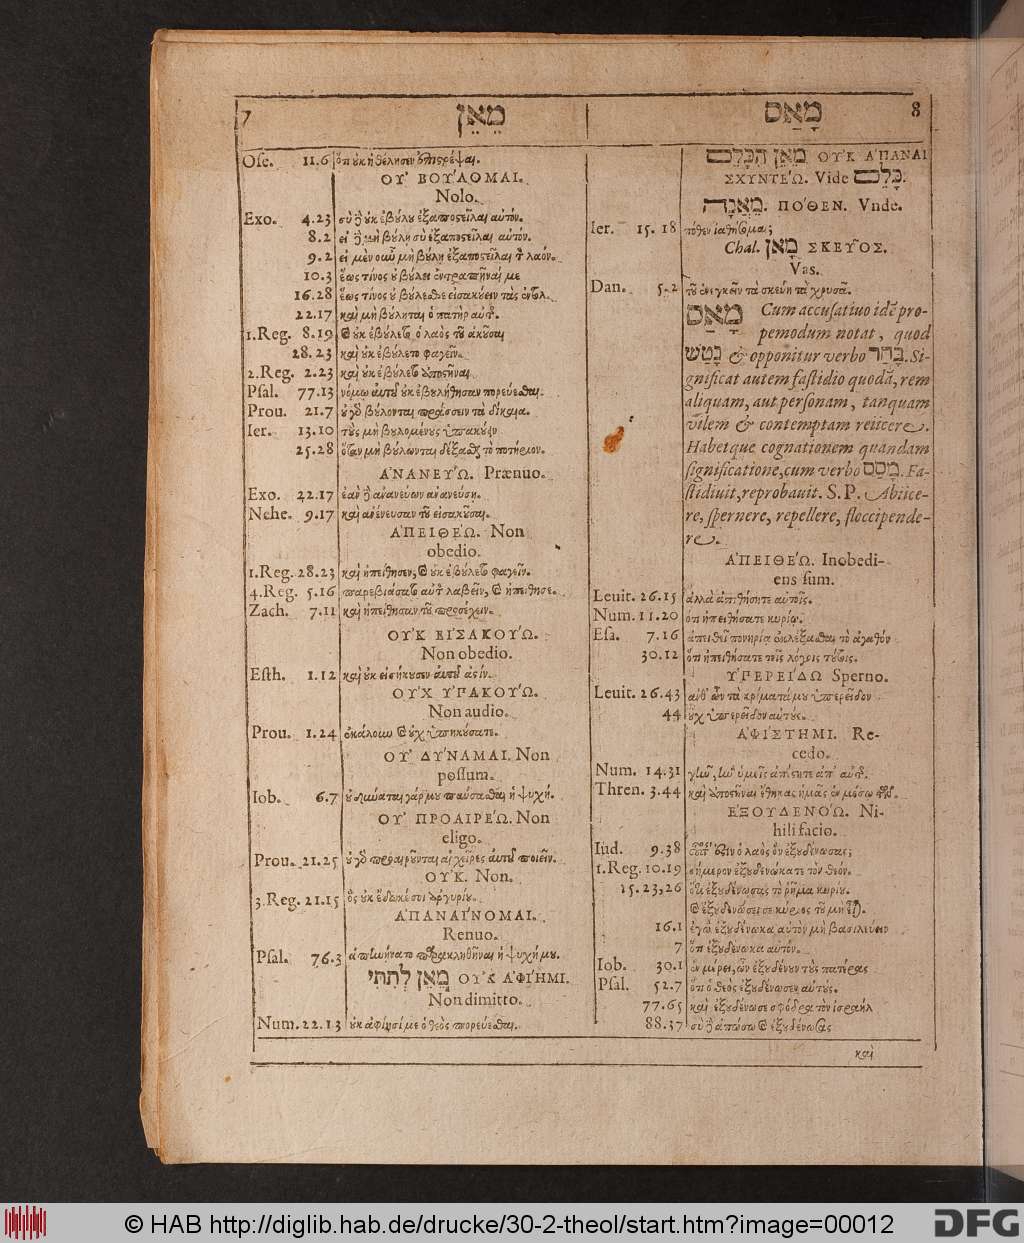 7 מָאֵן
Ose. 11.6 ὅτι οὐκ ἠθέλησεν ἐπιστρέψαι.
ΟΥ᾽ ΒΟΥ´ΛΟΜΑΙ.
Nolo.
Exo. 4.23 σὺ δὲ οὐκ ἐβούλου ἐξαποστεῖλαι αὐτόν.
8.2 εἰ δὲ μὴ βούλῃ σὺ ἐξαποστεῖλαι αὐτόν.
9.2 εἰ μὲν οὖν μὴ βούλῃ ἐξαποστεῖλαι τὸν λαόν.
10.3 ἕως τίνος οὐ βούλει ἐντραπῆναί με
16.28 ἕως τίνος οὐ βούλεσθε εἰσακούειν τὰς
22.17 καὶ μὴ βούληται ὁ πατὴρ αὐτῆς.
1.Reg. 8.19 καὶ οὐκ ἐβούλετο ὁ λαὸς τοῦ ἀκοῦσαι
28.23 καὶ οὐκ ἐβούλετο φαγεῖν.
2.Reg. 2.23 καὶ οὐκ ἐβούλετο ἀποστῆναι.
Psal. 77.13 νόμῳ αὐτοῦ οὐκ ἐβουλήθησαν πορεύεσθαι.
Prou. 21.7 οὐ γὰρ βούλονται πράσσειν τὰ δίκαια.
Ier. 13.10 τοὺς μὴ βουλομένους ὑπακούειν
25.28 ὅταν μὴ βούλωνται δέξασθαι τὸ ποτήριον.
Α᾽ΝΑΝΕΥ´Ω. Prænuo.
Exo. 22.17 ἐὰν δὲ ἀνανεύων ἀνανεύσῃ.
Nehe. 9.17 καὶ ἀνένευσαν τοῦ εἰσακοῦσαι.
Α᾽ΠΕΙΘΕ´Ω. Non
obedio.
1.Reg. 28.23 καὶ ἠπείθησεν, καὶ οὐκ ἐβούλετο φαγεῖν.
4.Reg. 5.16 παρεβιάσατο αὐτὸν λαβεῖν, καὶ ἠπείθησε.
Zach. 7.11 καὶ ἠπείθησαν τοῦ προσέχειν.
ΟΥ᾽Κ ΕΙ᾽ΣΑΚΟΥ´Ω.
Non obedio.
Esth. 1.12 καὶ οὐκ εἰσήκουσεν αὐτοῦ
ΟΥ᾽Χ Υ῾ΠΑΚΟΥ´Ω.
Non audio.
Prou. 1.24 ἐκάλουν καὶ οὐχ ὑπηκούσατε.
ΟΥ᾽ ΔΥ´ΝΑΜΑΙ. Non
possum.
Iob. 6.7 οὐ δύναται γάρ μου παύσασθαι ἡ ψυχή.
ΟΥ᾽ ΠΡΟΑΙΡΕ´Ω. Non
eligo.
Prou. 21.25 οὐ γὰρ προαιροῦνται αἱ χεῖρες αὐτοῦ ποιεῖν.
ΟΥ᾽Κ. Non.
3.Reg. 21.15 ὃς οὐκ ἔδωκέ σοι ἀργυρίου.
Α᾽ΠΑΝΑΙ´ΝΟΜΑΙ.
Renuo.
Psal. 76.3 ἀπηνήνατο παρακληθῆναι ἡ ψυχή μου.
מָאֵן לְתִתִּי ΟΥ᾽Κ Α᾽ΦΙ´ΗΜΙ.
Non dimitto.
Num. 22.13 οὐκ ἀφίησί με ὁ θεὸς πορεύεσθαι.
מָאַס 8
מֵאֵן הִכָּלֵם ΟΥ᾽Κ Α᾽ΠΑΝΑΙ
ΣΧΥΝΤΕ´Ω. Vide כָּלַם.
מֵאֲנָה. ΠΟ´ΘΕΝ. Vnde.
Ier. 15.18 πόθεν ἰαθήσομαι;
Chal. מָאן ΣΚΕΥ˜ΟΣ.
Vas.
Dan. 5.2 τοῦ ἐνεγκεῖν τὰ σκεύη τὰ χρυσᾶ.
מָאַס Cum accusatiuo idẽ pro-
pemodum notat, quod
נָטַשׁ & opponitur verbo בָּחַר. Si-
gnificat autem fastidio quodã, rem
aliquam, aut personam, tanquam
vilem & contemptam reiicere.
Habetque cognationem quandam
significatione, cum verbo מָסַס. Fa-
stidiuit, reprobauit. S.P. Abiice-
re, spernere, repellere, floccipende-
re.
Α᾽ΠΕΙΘΕ´Ω. Inobedi-
ens sum.
Leuit. 26.15 ἀλλὰ ἀπειθήσητε αὐτοῖς.
Num. 11.20 ὅτι ἠπειθήσατε κυρίῳ.
Esa. 7.16 ἀπειθεῖ πονηρίᾳ ἐκλέξασθαι τὸ ἀγαθόν
30.12 ὅτι ἠπειθήσατε τοῖς λόγοις τούτοις.
Υ῾ΠΕΡΕΙ´ΔΩ Sperno.
Leuit. 26.43 ἀνθ᾽ ὧν τὰ κρίματά μου ὑπερεῖδον
44 οὐχ ὑπερεῖδον αὐτούς.
Α᾽ΦΙ´ΣΤΗΜΙ. Re-
cedo.
Num. 14.31 γῆν, ἣν ὑμεῖς ἀπέστητε ἀπ᾽ αὐτῆς.
Thren. 3.44 καὶ ἀποστῆναι ἔθηκας ἡμᾶς ἐν μέσῳ
Ε᾽ΞΟΥΔΕΝΟ´Ω. Ni-
hili facio.
Iud. 9.38 οὗτός ἐστιν ὁ λαὸς ὃν ἐξουδένωσας;
1.Reg. 10.19 σήμερον ἐξουδενώκατε τὸν θεόν.
15.23,26 ὅτι ἐξουδένωσας τὸ ῥῆμα κυρίου.
καὶ ἐξουδενώσει σε κύριος τοῦ μὴ εἶναι.
16.1 ἐγὼ ἐξουδένωκα αὐτὸν μὴ βασιλεύειν
7 ὅτι ἐξουδένωκα αὐτόν.
Iob. 30.1 ἐν μέρει, ὧν ἐξουδένουν τοὺς πατέρας
Psal. 52.7 ὅτι ὁ θεὸς ἐξουδένωσεν αὐτούς.
77.65 καὶ ἐξουδένωσε σφόδρα τὸν ἰσραήλ
88.37 σὺ δὲ ἀπώσω καὶ ἐξουδένωσας
καὶ
© HAB http://diglib.hab.de/drucke/30-2-theol/start.htm?image=00012 DFG